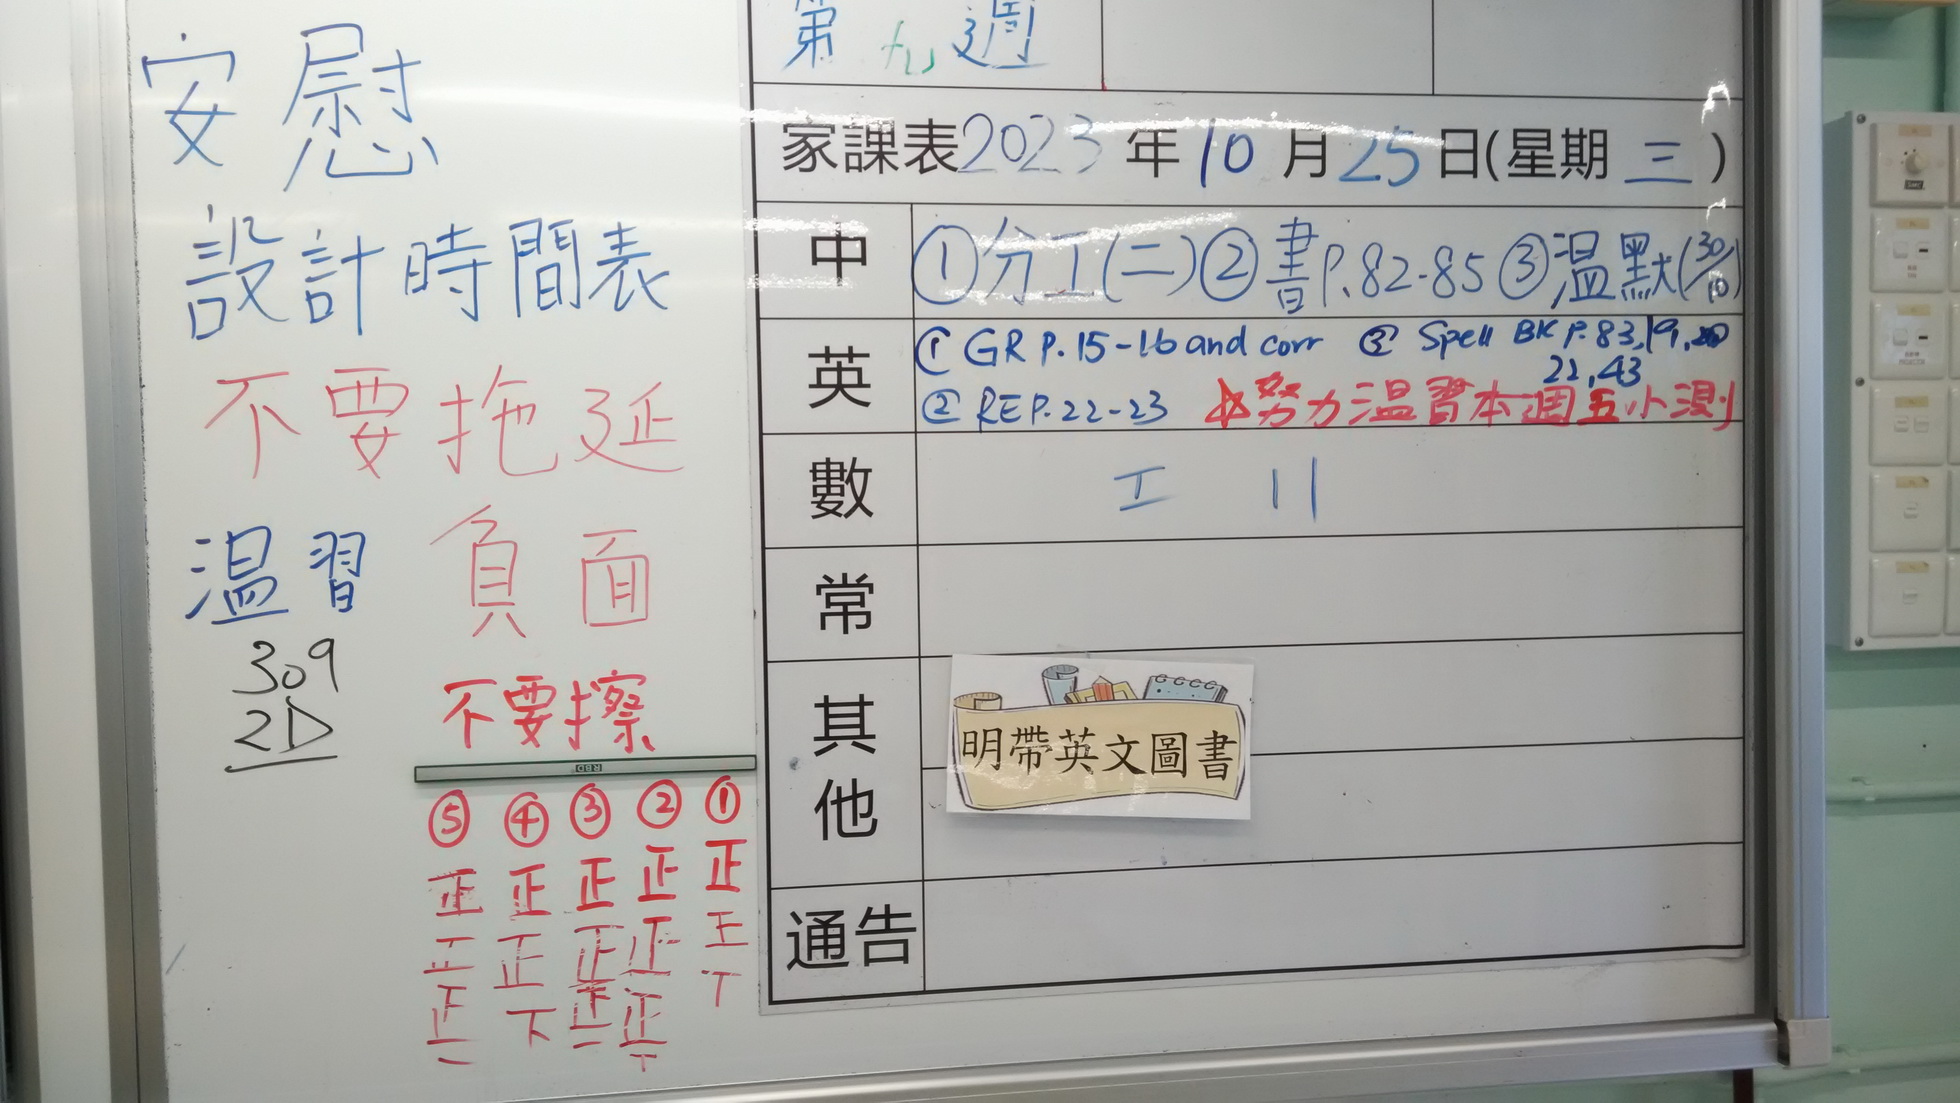 安慰
設計時間表
不要拖延
溫習 負面
309
2D
不要擦
RBD
⑤ ④ ③ ② ①
正 正 正 正 正
正 正 正 正
正 下 正 正
第九週
家課表2023年10月25日(星期三)
中 ①分工(二)②書P.82-85③溫默(30/10)
英 ① GR P.15-16 and corr ③ Spell BK P.83,19,20
22,43
② RE P.22-23 努力溫習本週五小測
數 工 11
常
其他 明帶英文圖書
通告